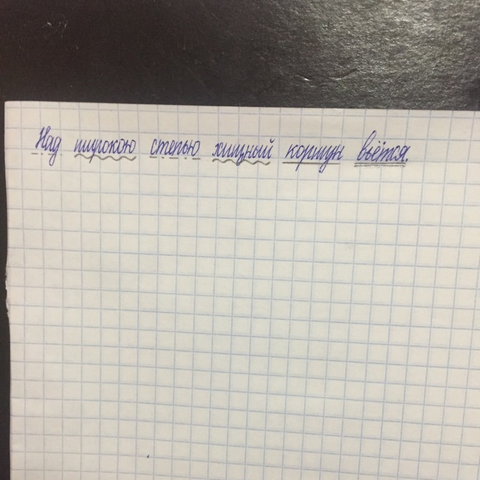 Над широкою степью хищный коршун вьётся.